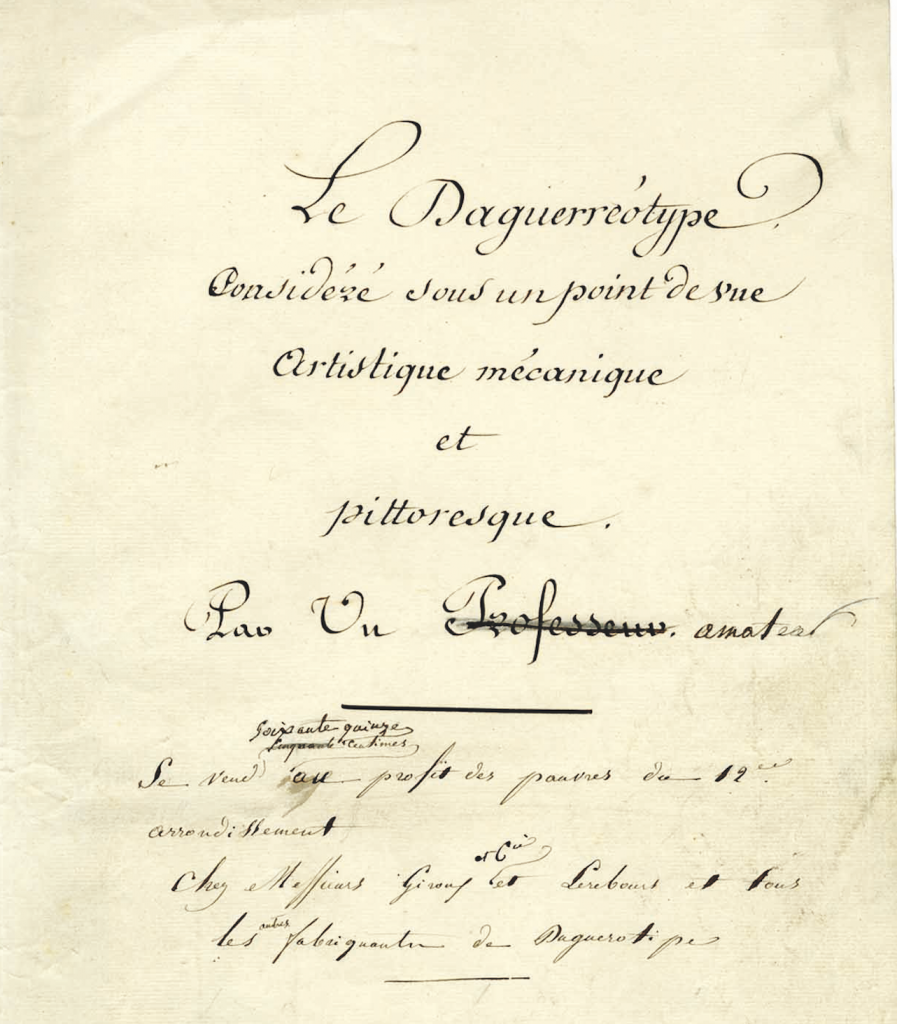 Le Daguerréotype.
Considéré sous un point de vue
Artistique mécanique
et
pittoresque.
Par Un Professeur. amateur
Soixante quinze
Cinquante Centimes
Se vend au profit des pauvres du 12ee
arrondissement
et Cie
Chez Messieurs Giroux et Lerebours et tous
autres
les fabriquants de Daguerotipe